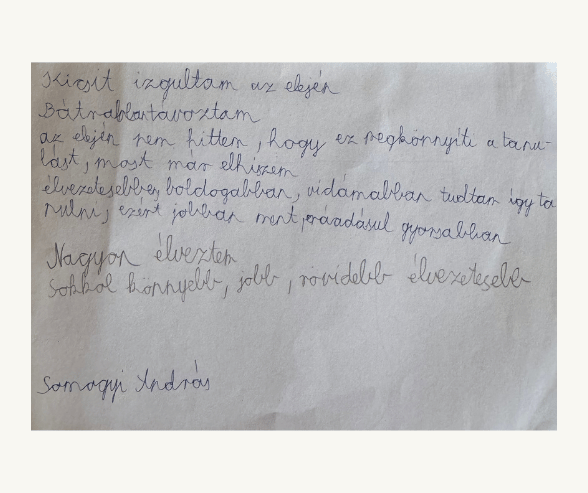 Kicsit izgultam az elején
Bátrabban távoztam
az elején nem hittem, hogy ez megkönnyíti a tanu-
lást, most már elhiszem
élvezetesebben, boldogabban, vidámabban tudtam így ta
nulni, ezért jobban ment, ráadásul gyorsabban
Nagyon élveztem
Sokkal könnyebb, jobb, rövidebb élvezetesebb
Somogyi András